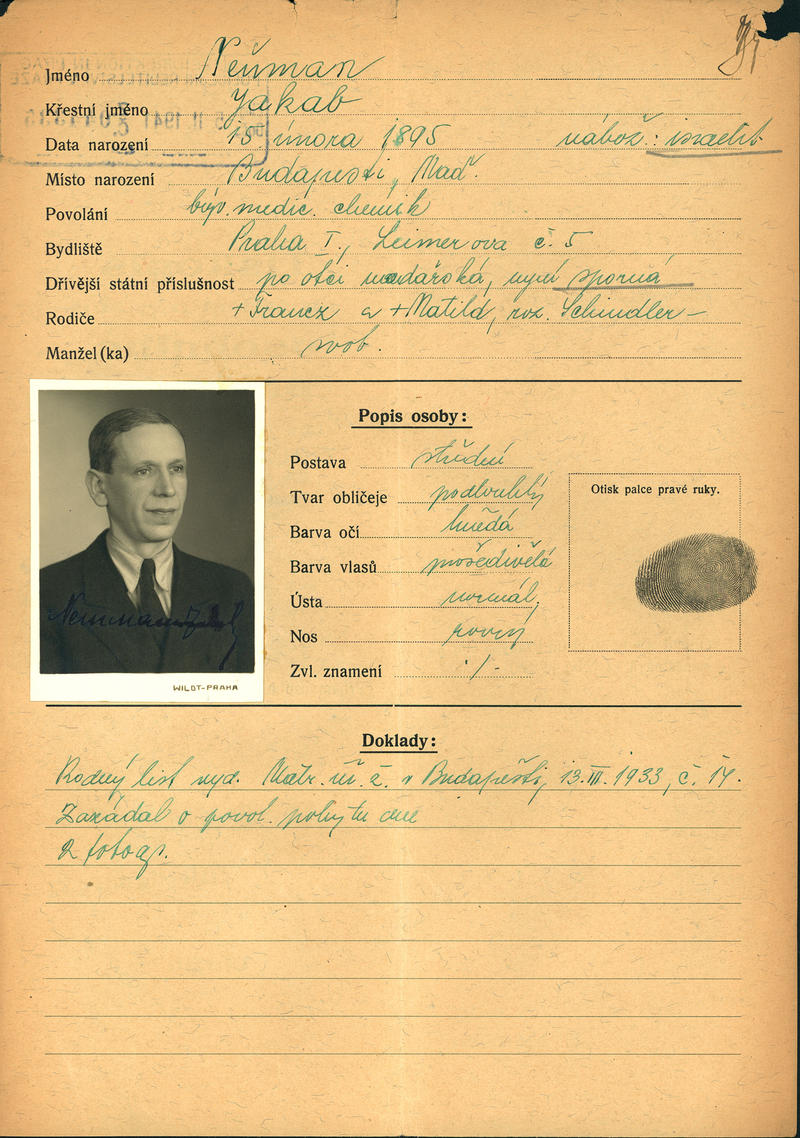 Jméno Neuman
Křestní jméno Jakab
Data narození 15. února 1895 nábož.: israelit
Místo narození Budapešti, Maď.
Povolání býv. medic. chemik
Bydliště Praha I., Leimerova č. 5
Dřívější státní příslušnost po otci maďarská, nyní sporná
Rodiče + Francz a + Matild, roz. Schindler –
Manžel (ka) svob.
Popis osoby:
Postava střední
Tvar obličeje podlouhlý
Barva očí hnědá
Barva vlasů prošedivělá
Ústa normál.
Nos rovný
Zvl. znamení ·/·
Otisk palce pravé ruky.
WILDT-PRAHA
Doklady:
Rodný list vyd. Matr. úř. ž. v Budapešti, 13.III.1933, č. 14.
Zažádal o povol. pobytu dne
2 fotogr.